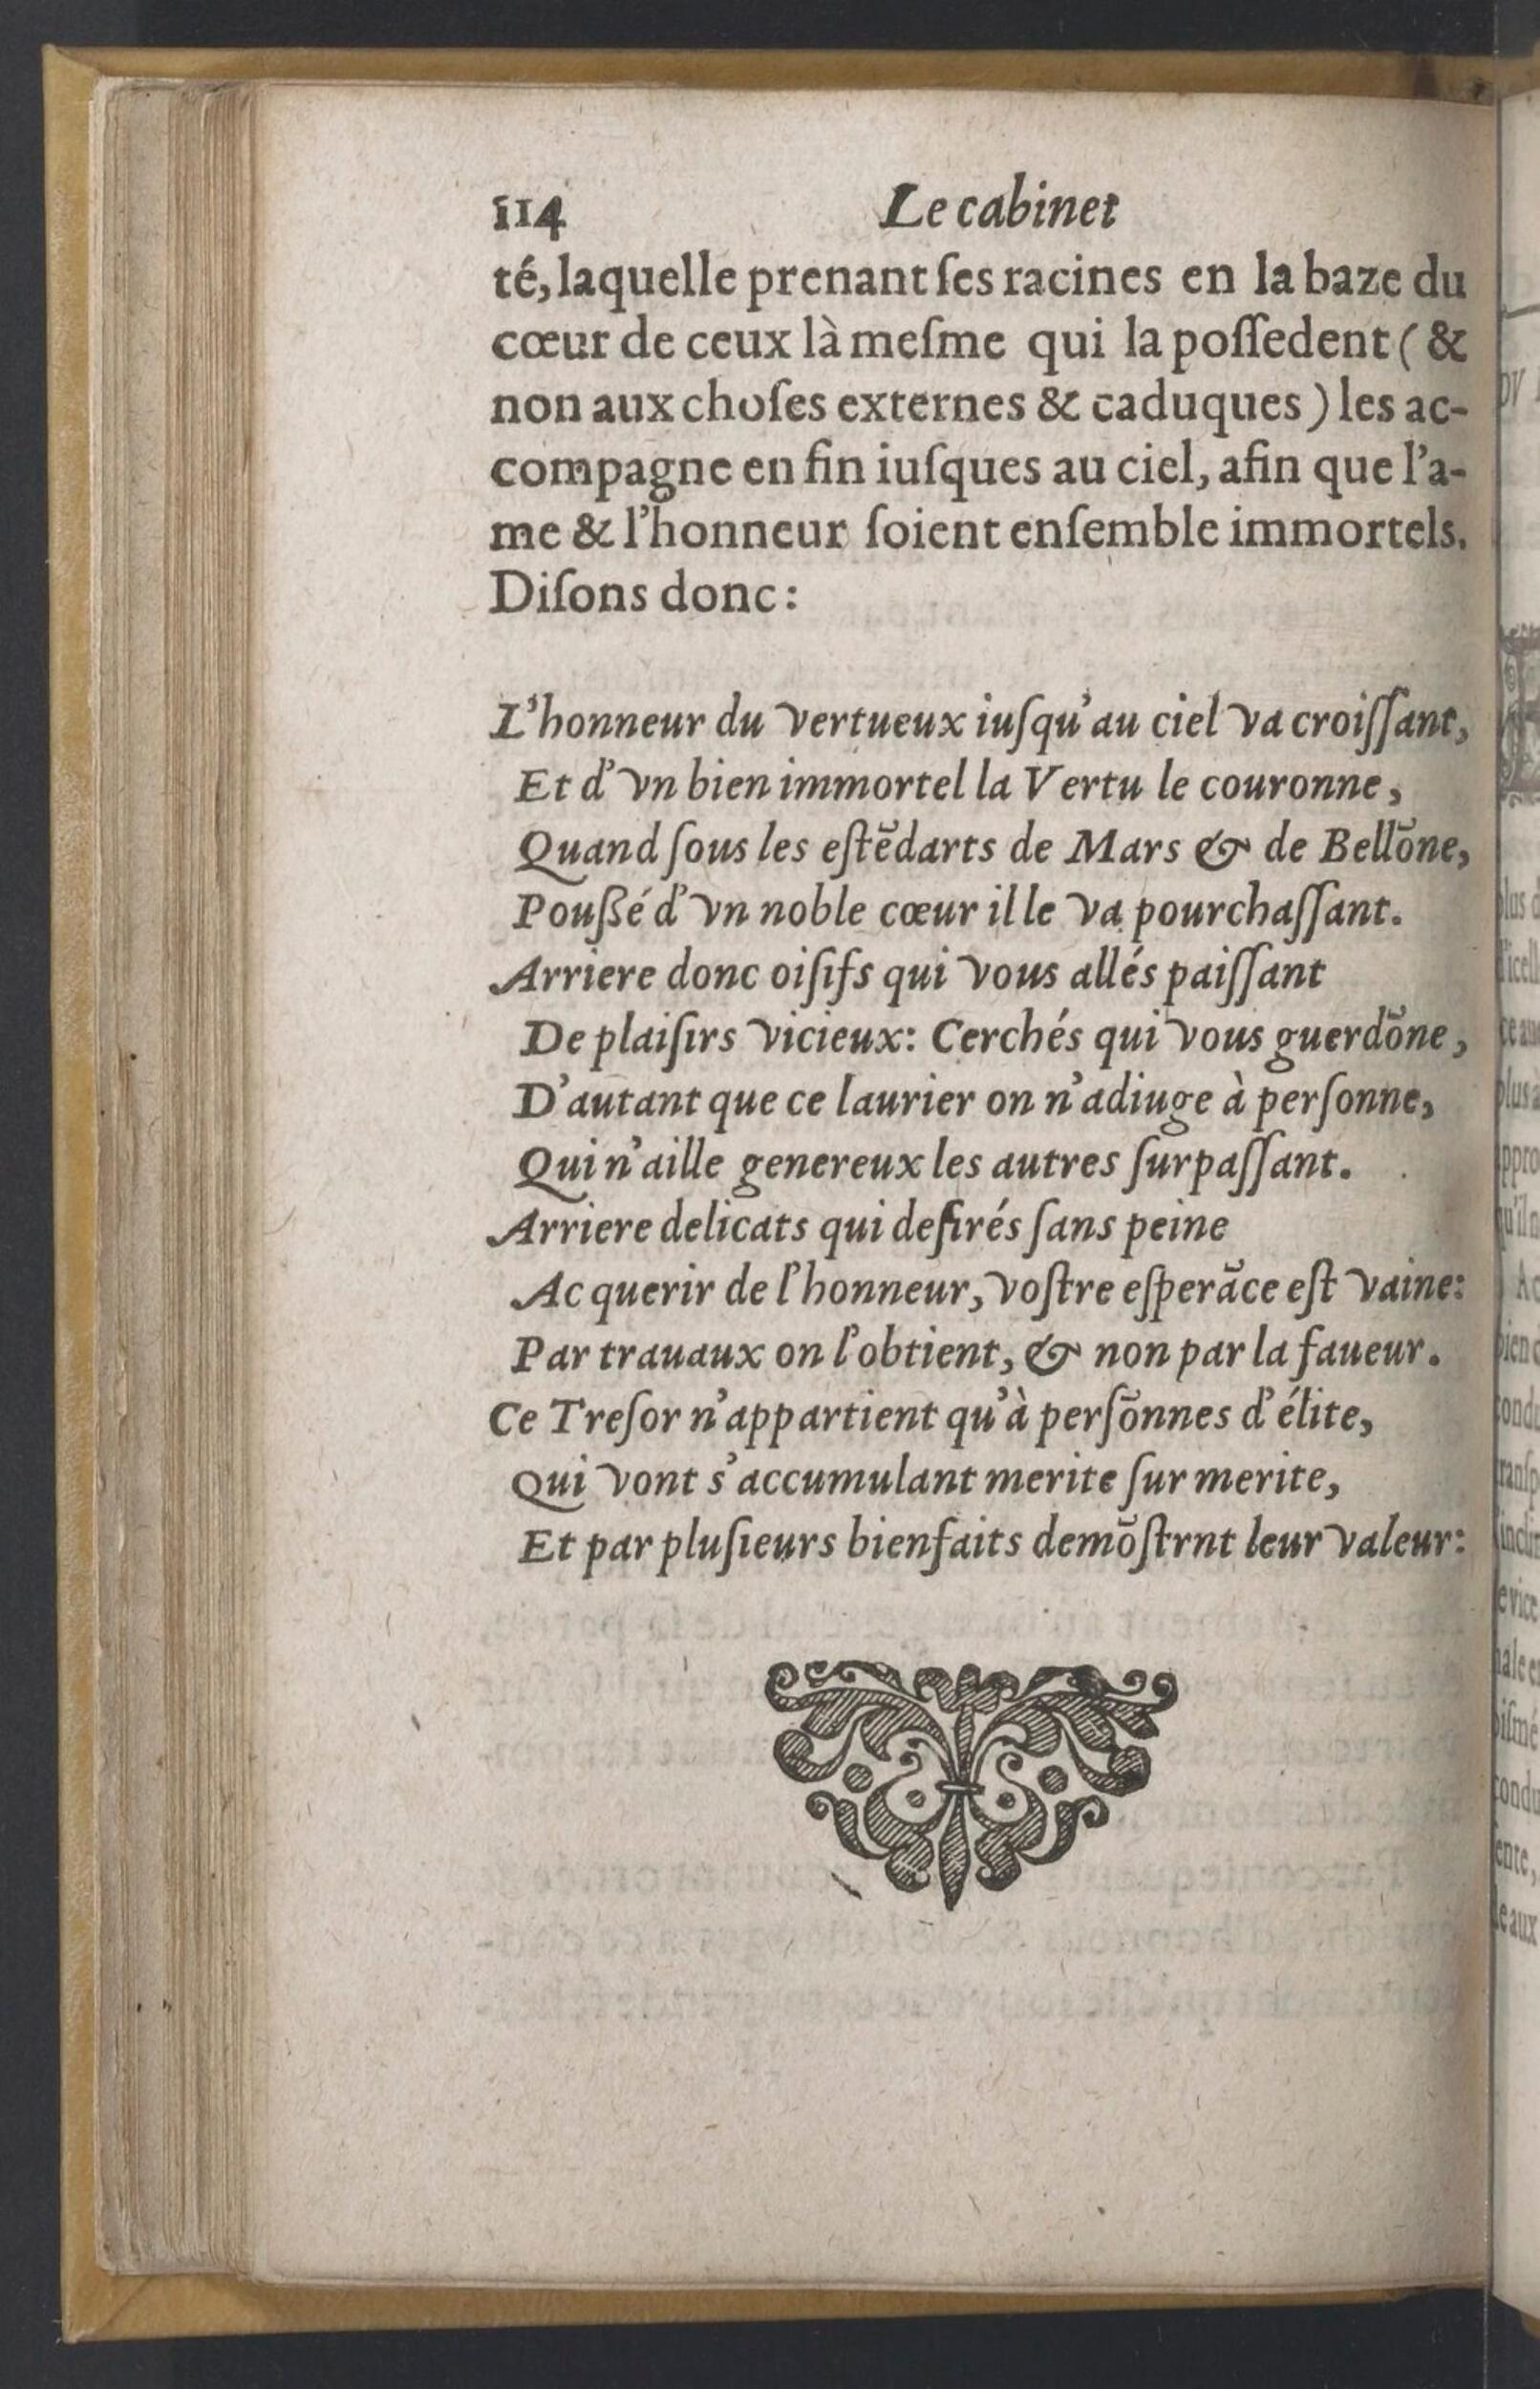 114 Le cabinet
té, laquelle prenant ſes racines en la baze du
cœur de ceux là meſme qui la poſſedent ( &
non aux choſes externes & caduques ) les ac-
compagne en fin iuſques au ciel, afin que l'a-
me & l'honneur ſoient enſemble immortels.
Diſons donc :
L'honneur du vertueux iuſqu'au ciel va croiſſant,
Et d'vn bien immortel la Vertu le couronne,
Quand ſous les eſtēdarts de Mars & de Bellōne,
Pouſſé d'vn noble cœur il le va pourchaſſant.
Arriere donc oiſifs qui vous allés paiſſant
De plaiſirs vicieux: Cerchés qui vous guerdōne,
D'autant que ce laurier on n'adiuge à perſonne,
Qui n'aille genereux les autres ſurpaſſant.
Arriere delicats qui deſirés ſans peine
Acquerir de l'honneur, voſtre eſperāce eſt vaine:
Par trauaux on l'obtient, & non par la faueur.
Ce Treſor n'appartient qu'à perſōnnes d'élite,
Qui vont s'accumulant merite ſur merite,
Et par pluſieurs bienfaits demōſtrnt leur valeur: